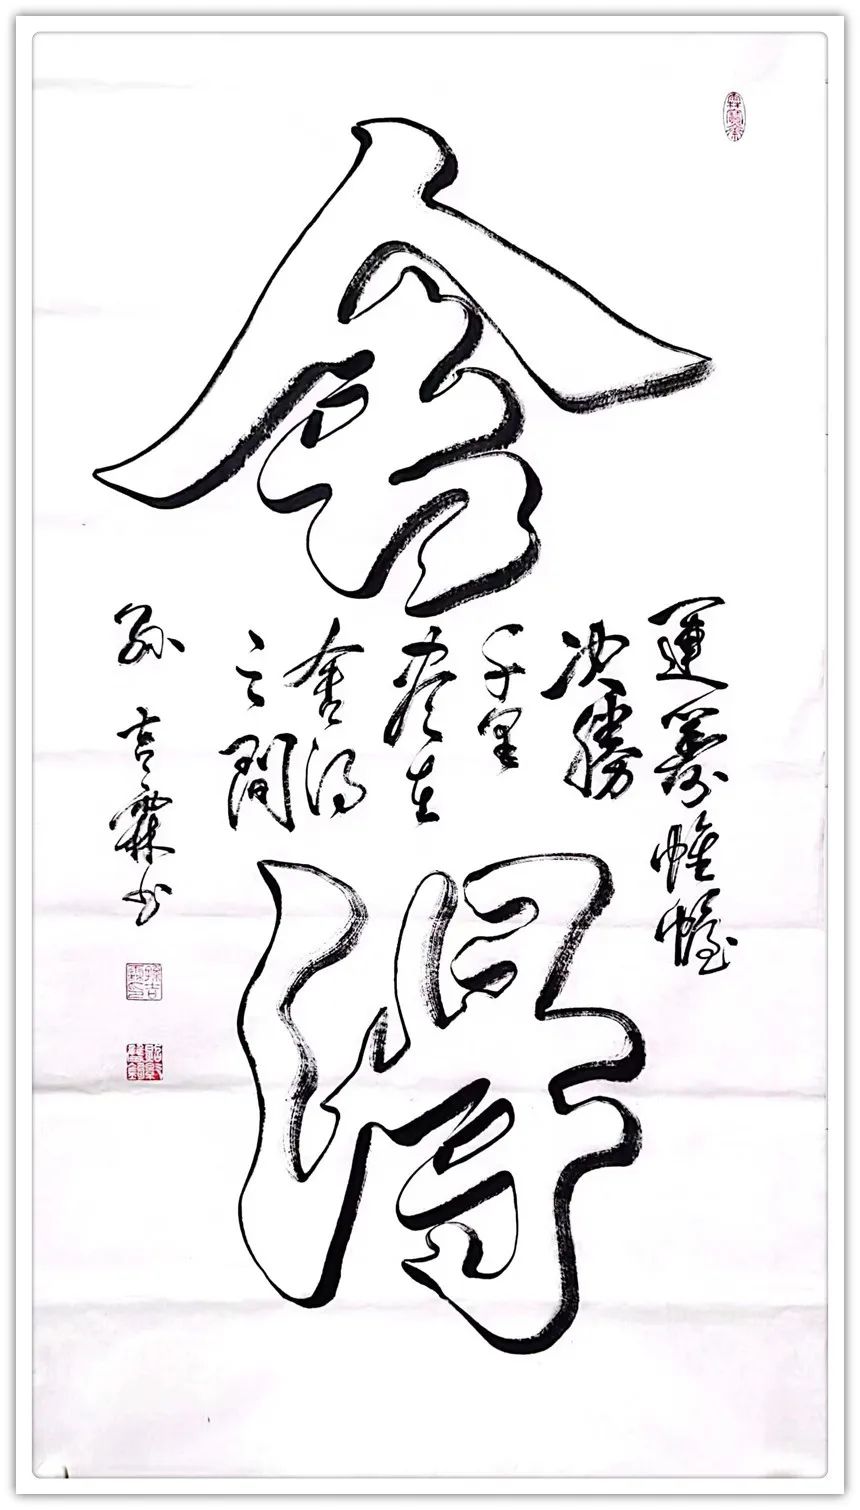 舍
得
運籌帷幄
决勝
千里
尽在
舍得
之間
孫吉霖书